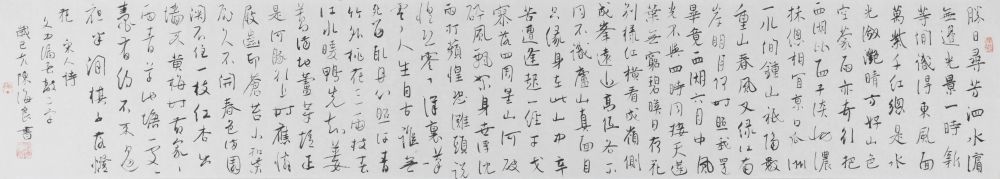 胜日尋芳泗水濱
無邊光景一時新
等閑識得東風面
萬紫千紅總是水
光瀲灩晴方好山色
空蒙雨亦奇欲把
西湖比西子淡妝濃
抹總相宜京口瓜洲
一水間鍾山祇隔數
重山春風又綠江南
岸明月何時照我還
畢竟西湖六月中風
光不與四時同接天蓮
葉無窮碧映日荷花
別樣紅橫看成嶺側
成峰遠近高低各不
同不識廬山真面目
只緣身在此山中辛
苦遭逢起一經干戈
寥落四周星山河破
碎風飄絮身世浮沉
雨打萍惶恐灘頭說
惶恐零丁洋裏嘆
零丁人生自古誰無
死留取丹心照汗青
竹外桃花三兩枝春
江水暖鴨先知蔞
蒿滿地蘆芽短正
是河豚欲上時應憐
屐齒印蒼苔小扣柴
扉久不開春色滿園
關不住一枝紅杏出
墻來黃梅時節家家
雨青草池塘處處
蛙有約不來過
夜半閑棋子落燈
花 宋人詩
文中漏春敲二字
歲己亥陳海良書